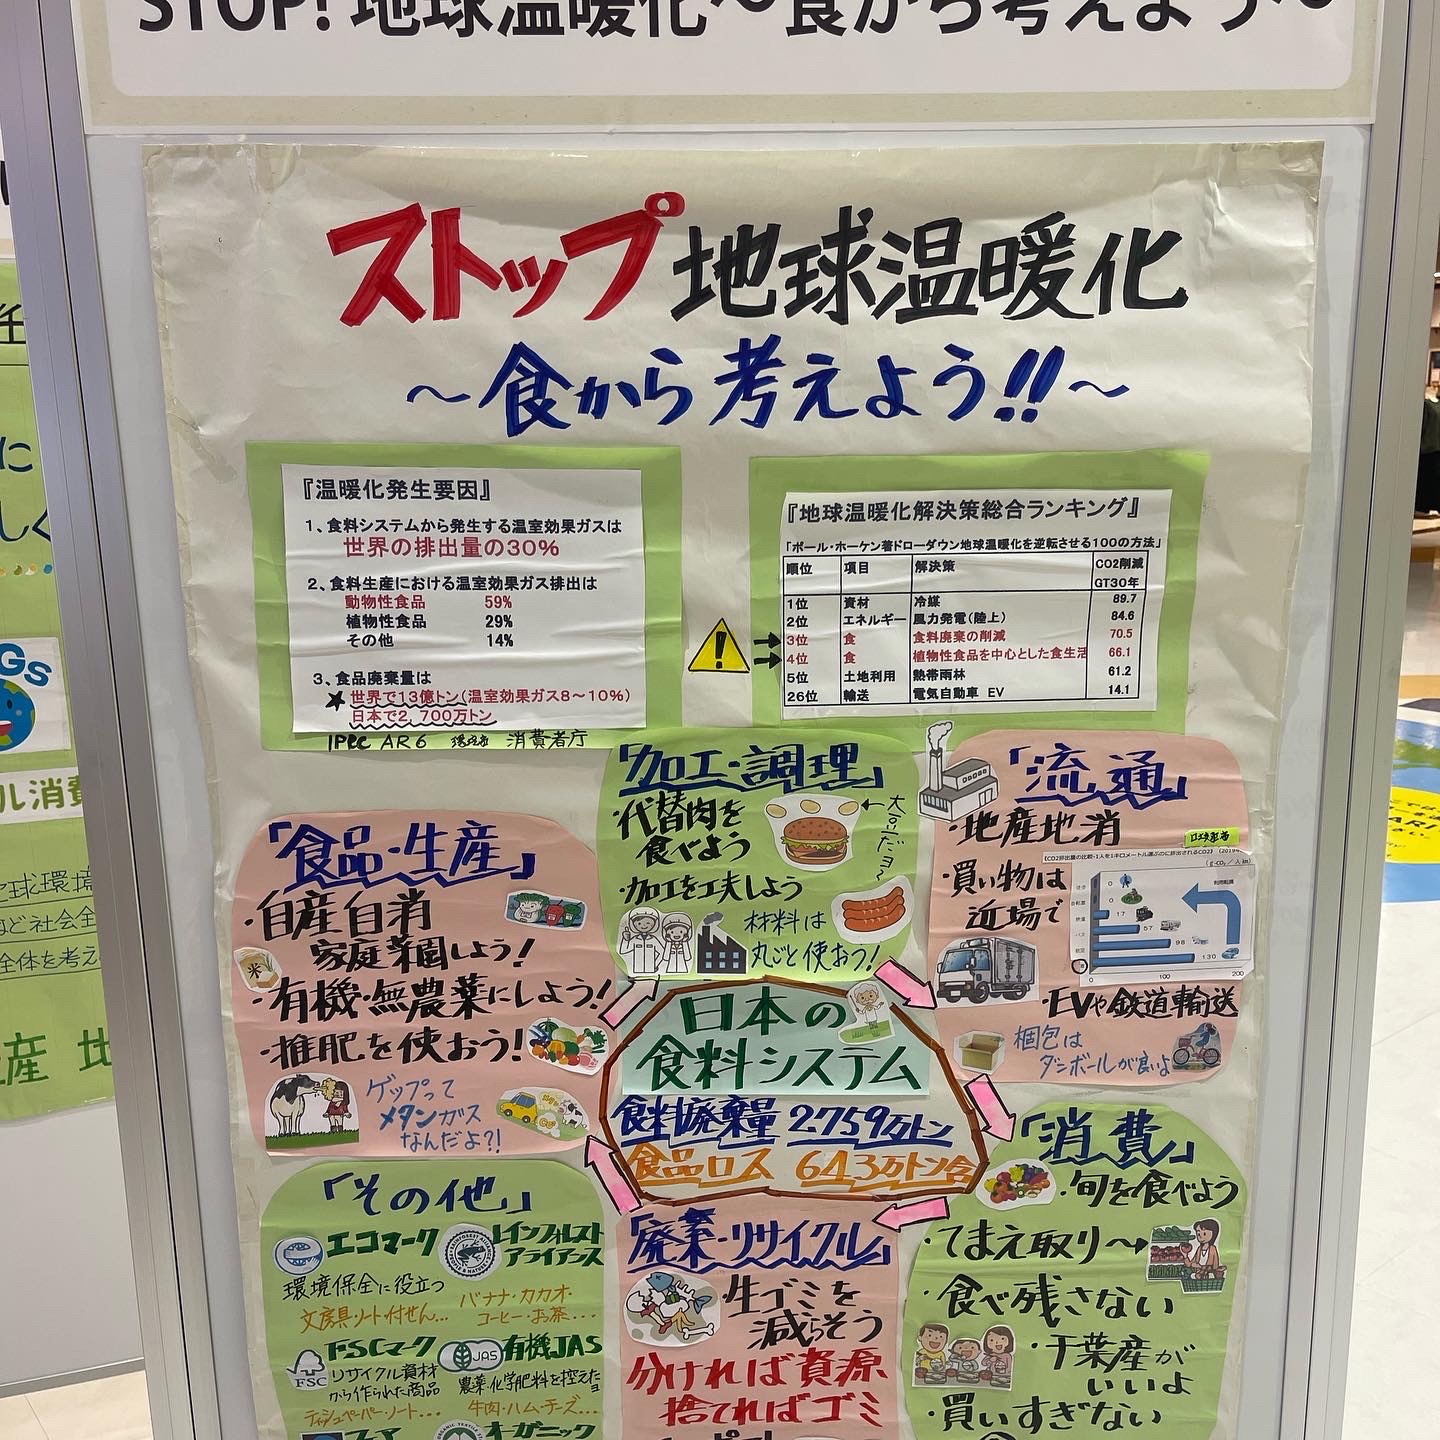 STOP! 地球温暖化～食から考えよう～
ストップ 地球温暖化
～食から考えよう!!～
『温暖化発生要因』
1、食料システムから発生する温室効果ガスは
世界の排出量の30%
2、食料生産における温室効果ガス排出は
動物性食品 59%
植物性食品 29%
その他 14%
3、食品廃棄量は
★世界で13億トン(温室効果ガス8～10%)
日本で2,700万トン
IPCC AR6 環境省 消費者庁
『地球温暖化解決策総合ランキング』
「ポール・ホーケン著ドローダウン地球温暖化を逆転させる100の方法」
順位 項目 解決策 CO2削減
GT30年
1位 資材 冷媒 89.7
2位 エネルギー 風力発電(陸上) 84.6
3位 食 食料廃棄の削減 70.5
4位 食 植物性食品を中心とした食生活 66.1
5位 土地利用 熱帯雨林 61.2
26位 輸送 電気自動車 EV 14.1
「加工・調理」
・代替肉を
食べよう
大豆だヨ〜
・加工を工夫しよう
材料は
丸ごと使おう!
「流通」
・地産地消
・買い物は
近場で
《CO2排出量の比較・1人を1キロメートル運ぶのに排出されるCO2》
(g-CO₂／人km)
0
0
17
57
98
130
0 100 200
・EVや鉄道輸送
梱包は
ダンボールが良いよ
「食品・生産」
・自産自消
家庭菜園しよう!
米
・有機・無農薬にしよう!
・堆肥を使おう!
ゲップって
メタンガス
なんだよ?!
日本の
食料システム
食料廃棄量 2759万トン
食品ロス 643万トン含
「消費」
・旬を食べよう
・てまえ取り→
・食べ残さない
・千葉産が
いいよ
・買いすぎない
「その他」
エコマーク
環境保全に役立つ
文房具・ノート・付せん...
レインフォレスト
アライアンス
バナナ・カカオ・
コーヒー・お茶...
FSCマーク
FSC
リサイクル資材
から作られた商品
ティッシュペーパー・ノート...
JAS
有機JAS
農薬・化学肥料を控えた
ヨ
牛肉・ハム・チーズ...
オーガニック
「廃棄・リサイクル」
・生ゴミを
減らそう
分ければ資源
捨てればゴミ
GS
ル消費
球環境
ど社会全
全体を考え
産 地